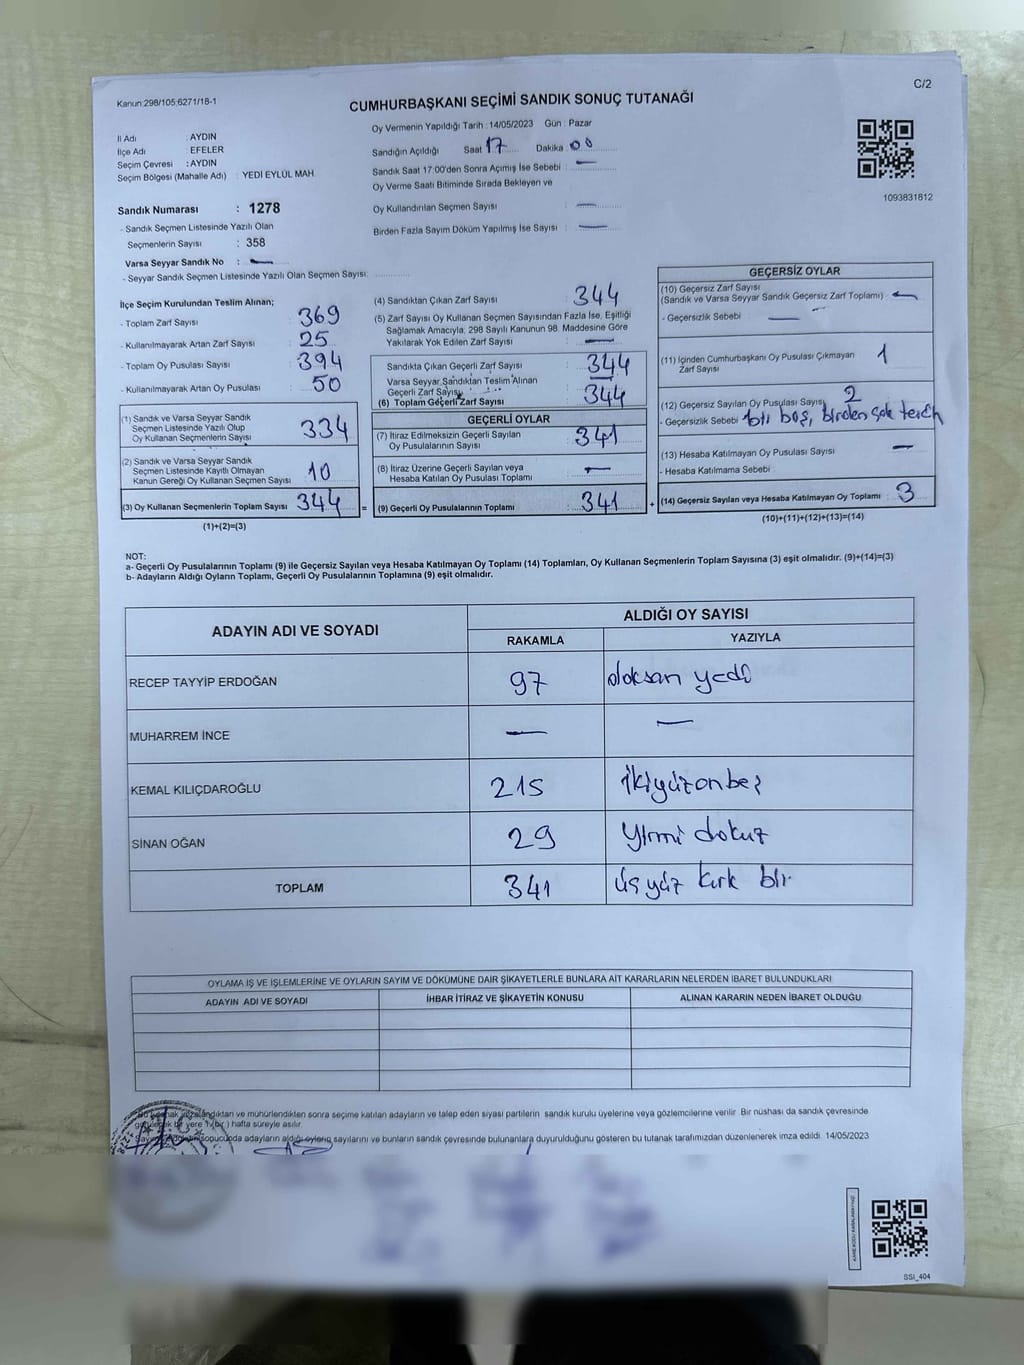 C/2
Kanun:298/105;6271/18-1
CUMHURBAŞKANI SEÇİMİ SANDIK SONUÇ TUTANAĞI
İl Adı : AYDIN
İlçe Adı : EFELER
Seçim Çevresi : AYDIN
Seçim Bölgesi (Mahalle Adı) : YEDİ EYLÜL MAH
Sandık Numarası : 1278
- Sandık Seçmen Listesinde Yazılı Olan
Seçmenlerin Sayısı : 358
Varsa Seyyar Sandık No : —
- Seyyar Sandık Seçmen Listesinde Yazılı Olan Seçmen Sayısı:
Oy Vermenin Yapıldığı Tarih : 14/05/2023 Gün : Pazar
Sandığın Açıldığı Saat 17 Dakika 00
Sandık Saat 17:00'den Sonra Açımış İse Sebebi : —
Oy Verme Saati Bitiminde Sırada Bekleyen ve
Oy Kullandırılan Seçmen Sayısı : —
Birden Fazla Sayım Döküm Yapılmış İse Sayısı : —
1093831812
İlçe Seçim Kurulundan Teslim Alınan;
- Toplam Zarf Sayısı : 369
- Kullanılmayarak Artan Zarf Sayısı : 25
- Toplam Oy Pusulası Sayısı : 394
- Kullanılmayarak Artan Oy Pusulası : 50
(1) Sandık ve Varsa Seyyar Sandık
Seçmen Listesinde Yazılı Olup
Oy Kullanan Seçmenlerin Sayısı 334
(2) Sandık ve Varsa Seyyar Sandık
Seçmen Listesinde Kayıtlı Olmayan
Kanun Gereği Oy Kullanan Seçmen Sayısı 10
(3) Oy Kullanan Seçmenlerin Toplam Sayısı 344 =
(1)+(2)=(3)
(4) Sandıktan Çıkan Zarf Sayısı : 344
(5) Zarf Sayısı Oy Kullanan Seçmen Sayısından Fazla İse, Eşitliği
Sağlamak Amacıyla, 298 Sayılı Kanunun 98. Maddesine Göre
Yakılarak Yok Edilen Zarf Sayısı : —
Sandıkta Çıkan Geçerli Zarf Sayısı : 344
Varsa Seyyar Sandıktan Teslim Alınan
Geçerli Zarf Sayısı —
(6) Toplam Geçerli Zarf Sayısı : 344
GEÇERLİ OYLAR
(7) İtiraz Edilmeksizin Geçerli Sayılan
Oy Pusulalarının Sayısı : 341
(8) İtiraz Üzerine Geçerli Sayılan veya
Hesaba Katılan Oy Pusulası Toplamı : —
(9) Geçerli Oy Pusulalarının Toplamı : 341 +
GEÇERSİZ OYLAR
(10) Geçersiz Zarf Sayısı
(Sandık ve Varsa Seyyar Sandık Geçersiz Zarf Toplamı) : —
- Geçersizlik Sebebi : —
(11) İçinden Cumhurbaşkanı Oy Pusulası Çıkmayan
Zarf Sayısı : 1
(12) Geçersiz Sayılan Oy Pusulası Sayısı 2
- Geçersizlik Sebebi biri boş, birden çok tercih
(13) Hesaba Katılmayan Oy Pusulası Sayısı —
- Hesaba Katılmama Sebebi
(14) Geçersiz Sayılan veya Hesaba Katılmayan Oy Toplamı : 3
(10)+(11)+(12)+(13)=(14)
NOT:
a- Geçerli Oy Pusulalarının Toplamı (9) ile Geçersiz Sayılan veya Hesaba Katılmayan Oy Toplamı (14) Toplamları, Oy Kullanan Seçmenlerin Toplam Sayısına (3) eşit olmalıdır. (9)+(14)=(3)
b- Adayların Aldığı Oyların Toplamı, Geçerli Oy Pusulalarının Toplamına (9) eşit olmalıdır.
ADAYIN ADI VE SOYADI
ALDIĞI OY SAYISI
RAKAMLA YAZIYLA
RECEP TAYYİP ERDOĞAN 97 doksan yedi
MUHARREM İNCE — —
KEMAL KILIÇDAROĞLU 215 ikiyüzonbeş
SİNAN OĞAN 29 Yirmi dokuz
TOPLAM 341 üç yüz kırk bir
OYLAMA İŞ VE İŞLEMLERİNE VE OYLARIN SAYIM VE DÖKÜMÜNE DAİR ŞİKAYETLERLE BUNLARA AİT KARARLARIN NELERDEN İBARET BULUNDUKLARI
ADAYIN ADI VE SOYADI İHBAR İTİRAZ VE ŞİKAYETİN KONUSU ALINAN KARARIN NEDEN İBARET OLDUĞU
ve mühürlendikten sonra seçime katılan adayların ve talep eden siyasi partilerin sandık kurulu üyelerine veya gözlemcilerine verilir. Bir nüshası da sandık çevresinde
bir yere 1 (bir) hafta süreyle asılır.
sonucunda adayların aldığı oyların sayılarını ve bunların sandık çevresinde bulunanlara duyurulduğunu gösteren bu tutanak tarafımızdan düzenlenerek imza edildi. 14/05/2023
SSI_404